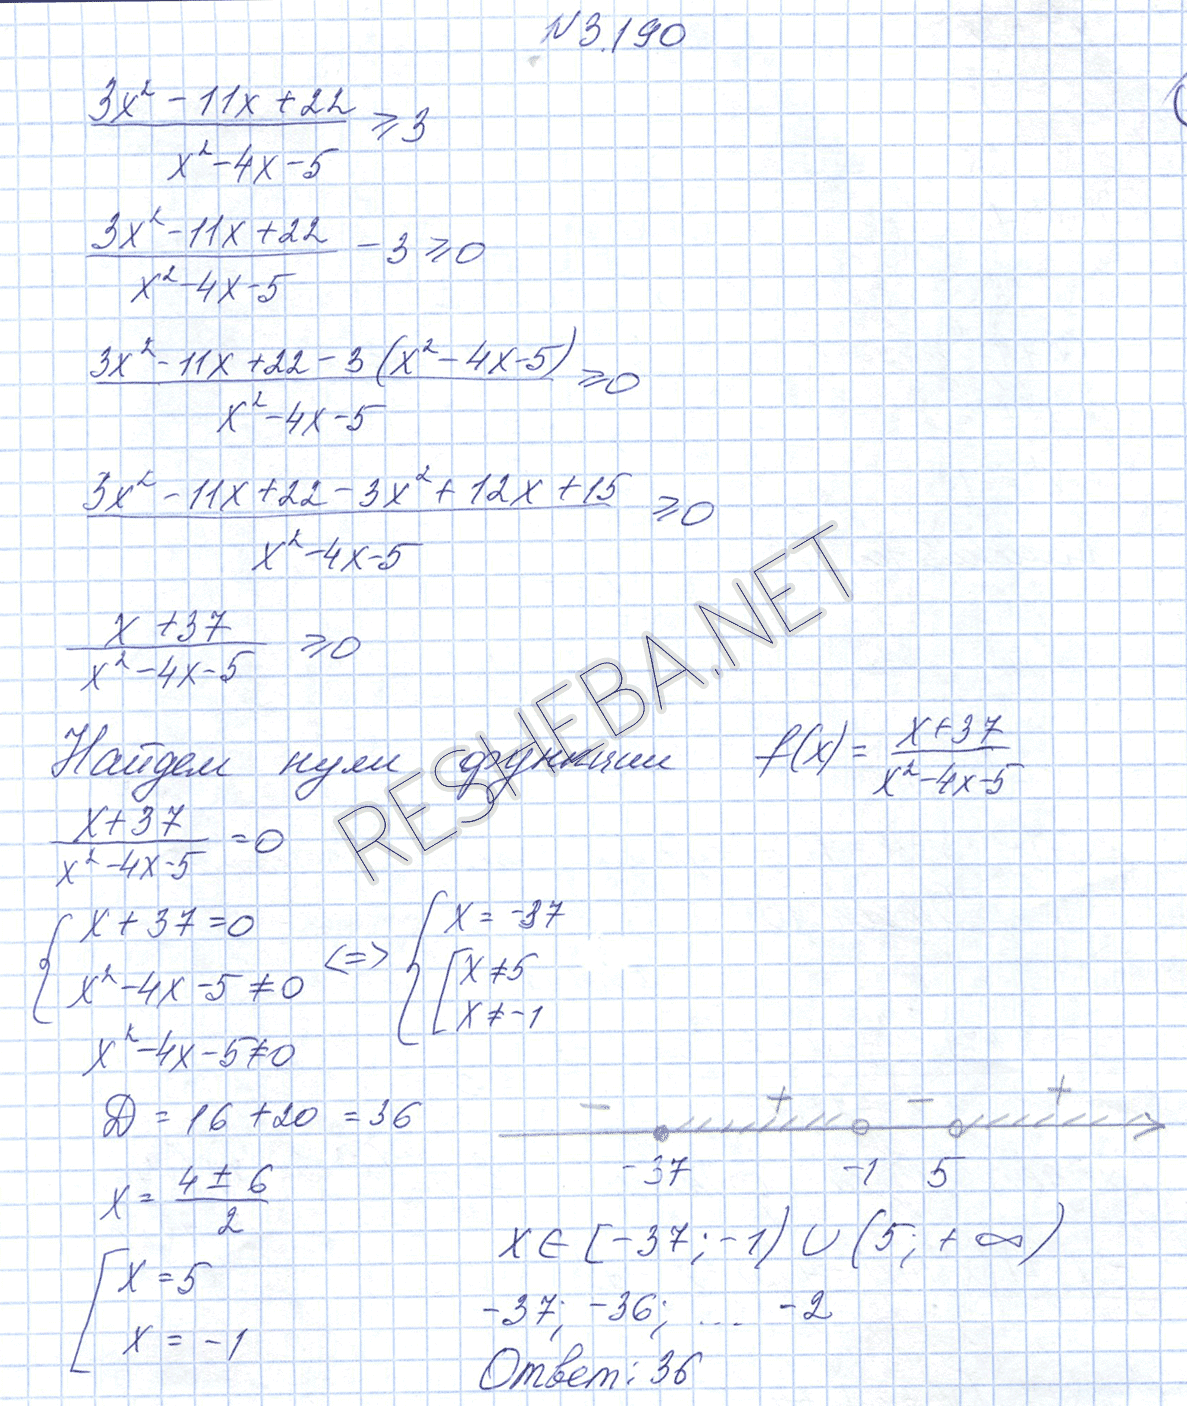 N3.190
(3x² - 11x + 22)/(x² - 4x - 5) ≥ 3
(3x² - 11x + 22)/(x² - 4x - 5) - 3 ≥ 0
(3x² - 11x + 22 - 3(x² - 4x - 5))/(x² - 4x - 5) ≥ 0
(3x² - 11x + 22 - 3x² + 12x + 15)/(x² - 4x - 5) ≥ 0
(x + 37)/(x² - 4x - 5) ≥ 0
Найдем нули функции f(x) = (x + 37)/(x² - 4x - 5)
(x + 37)/(x² - 4x - 5) = 0
{ x + 37 = 0
x² - 4x - 5 ≠ 0
<=>
{ x = -37
[ x ≠ 5
x ≠ -1
x² - 4x - 5 ≠ 0
Д = 16 + 20 = 36
x = (4 ± 6)/2
[ x = 5
x = -1
- + - +
-37 -1 5
x ∈ [-37; -1) ∪ (5; +∞)
-37; -36; ... -2
Ответ: 36
RESHEBA.NET